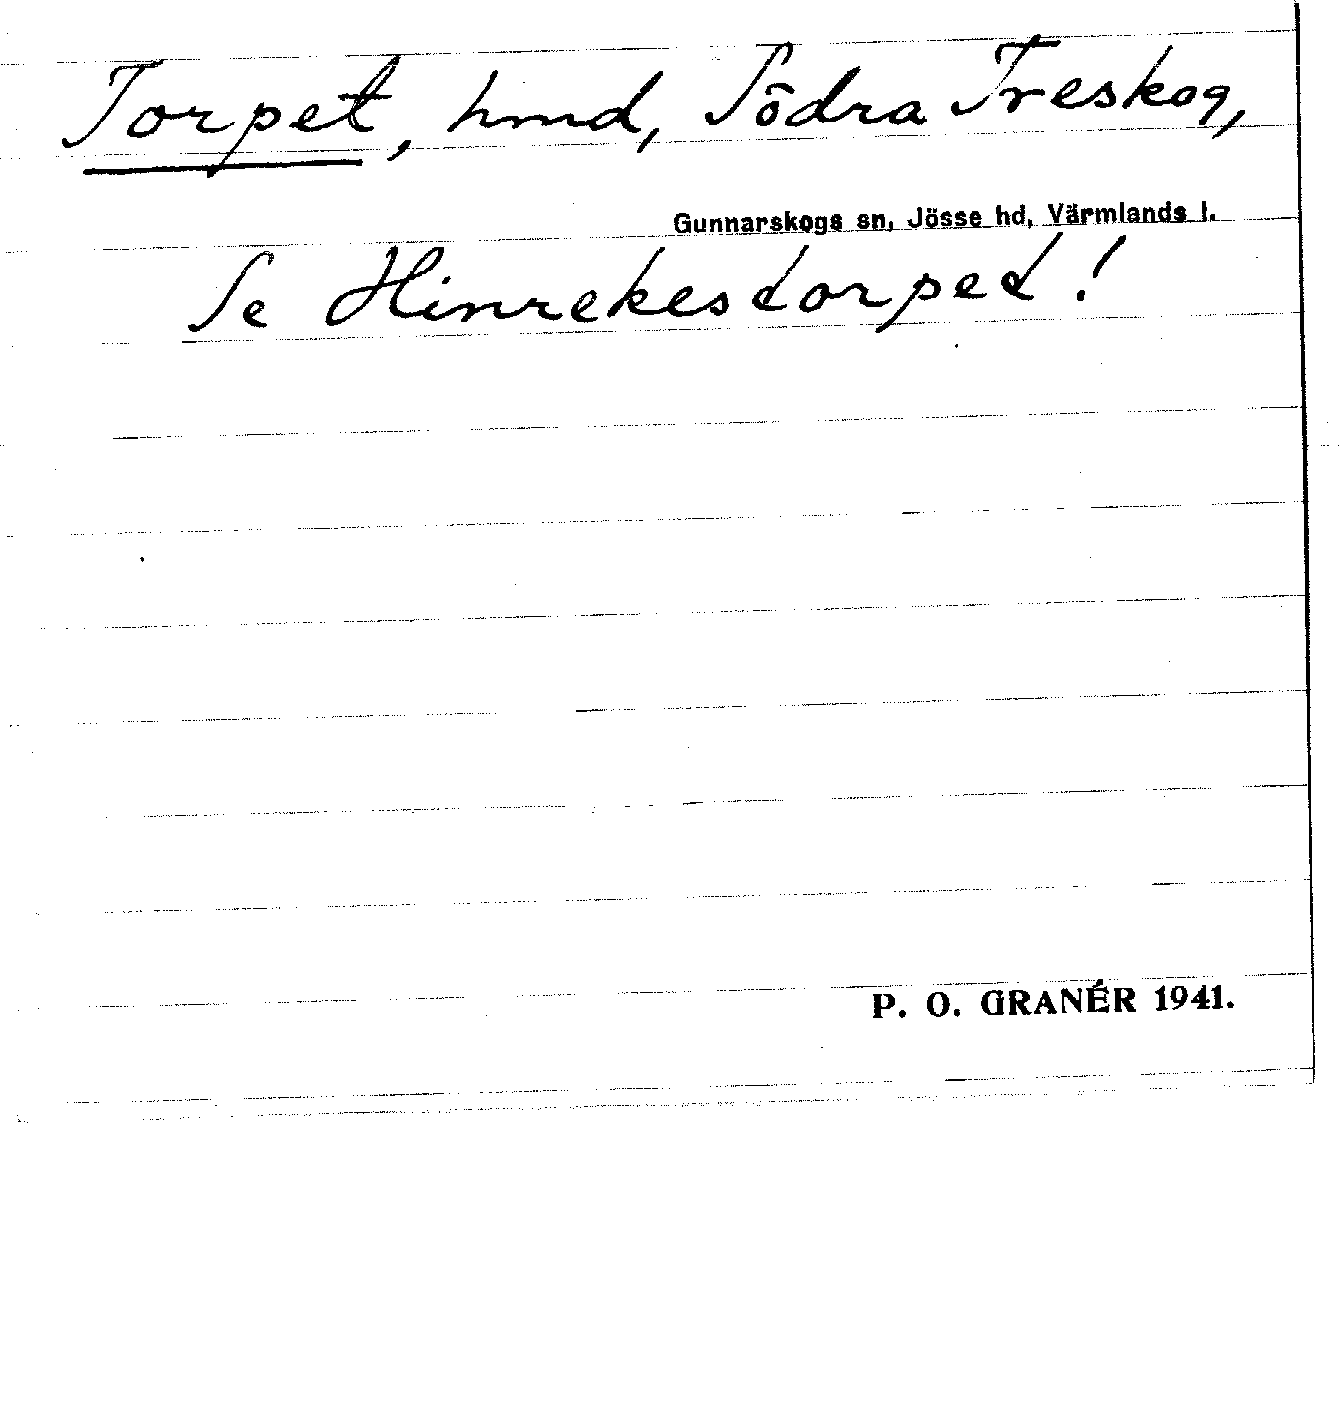 Torpet, hmd, Södra Treskog,
Gunnarskogs sn, Jösse hd, Värmlands l.
Se Hinrekestorpet!
P. O. GRANÉR 1941.